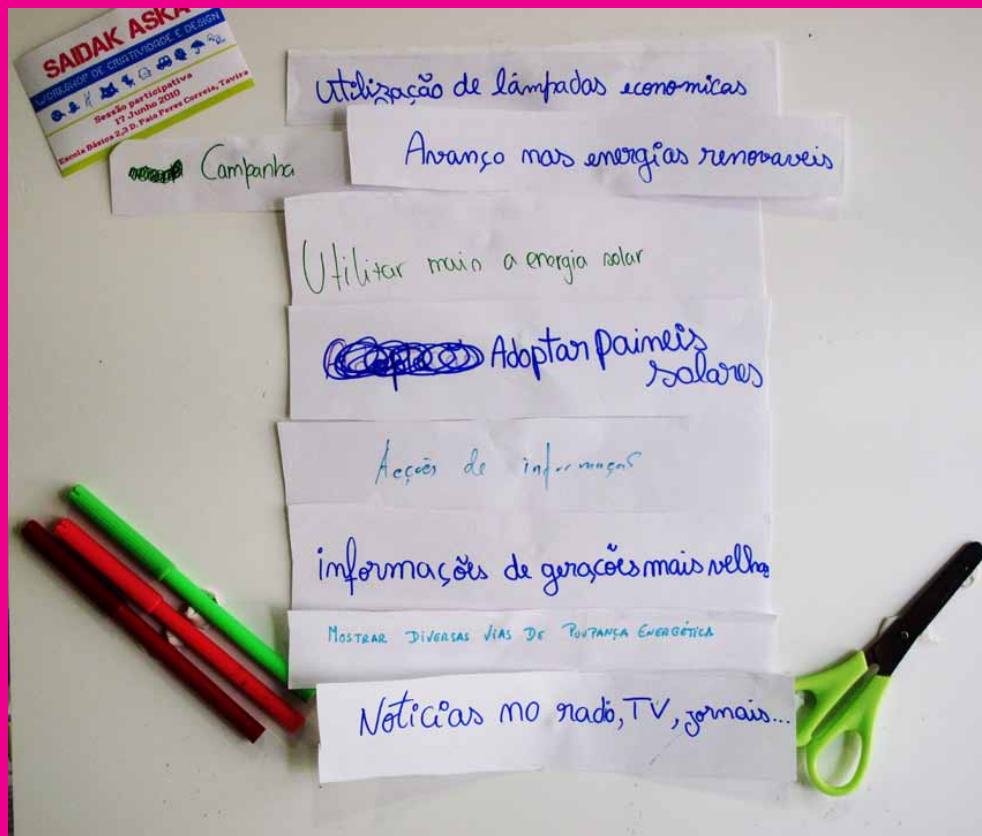 SAIDAK ASKA
WORKSHOP DE CRIATIVIDADE E DESIGN
Sessão participativa
17 Junho 2010
Escola Básica 2,3 D. Paio Peres Correia, Tavira
Utilização de lâmpadas economicas
Campanha
Avanço nas energias renovaveis
Utilitar mais a energia solar
Adoptar paineis
solares
Acções de informaçao
informações de gerações mais velha
MOSTRAR DIVERSAS VIAS DE POUPANÇA ENERGÉTICA
Noticias no radio, TV, jornais...